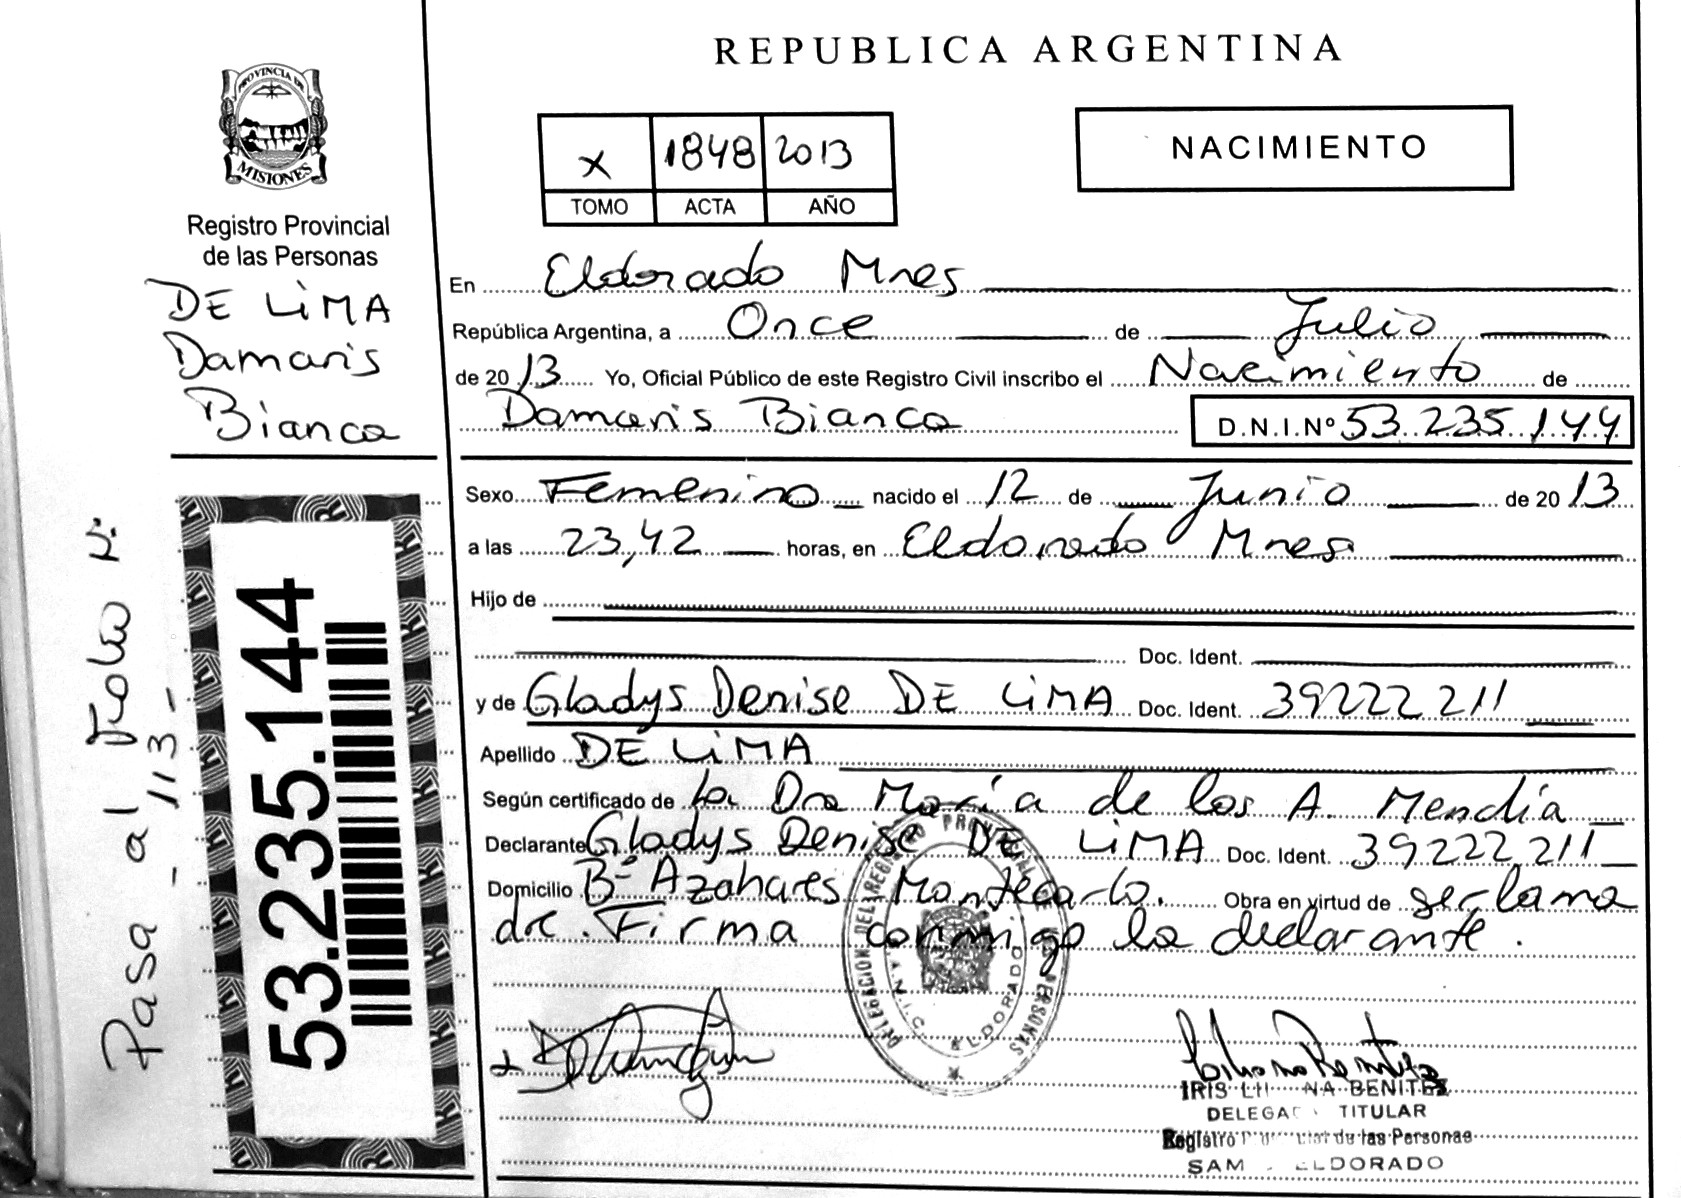 REPUBLICA ARGENTINA
PROVINCIA DE
MISIONES
Registro Provincial
de las Personas
DE LiMA
Damaris
Bianca
Pasa al Folio Nº
- 113 -
53.235.144
X 1848 2013
TOMO ACTA AÑO
NACIMIENTO
En Eldorado Mnes
República Argentina, a Once de Julio
de 20 13 Yo, Oficial Público de este Registro Civil inscribo el Nacimiento de
Damaris Bianca D.N.I.Nº 53.235.144
Sexo Femenino nacido el 12 de Junio de 20 13
a las 23,42 horas, en Eldorado Mnes.
Hijo de
Doc. Ident.
y de Gladys Denise DE LiMA Doc. Ident. 39222211
Apellido DE LiMA
Según certificado de la Dra María de los A. Mendía
Declarante Gladys Denise DE LiMA Doc. Ident. 39222211
Domicilio Bº Azahares Montecarlo. Obra en virtud de ser la ma
dre. Firma conmigo la declarante.
DELEGACION DEL REGISTRO PROVINCIAL DE LAS PERSONAS
ELDORADO
IRIS LILIANA BENITEZ
DELEGADA TITULAR
Registro Provincial de las Personas
ELDORADO